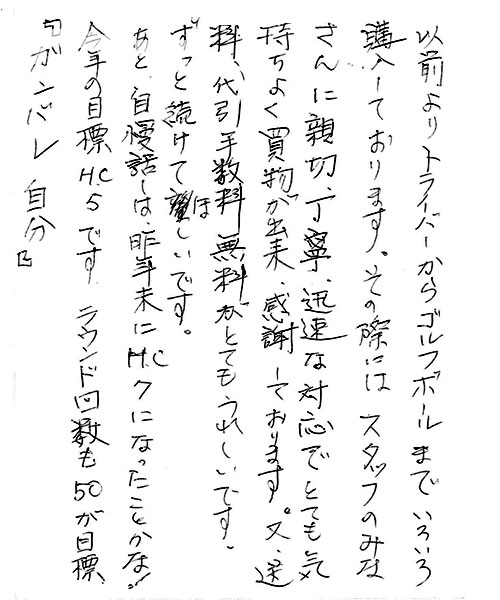 以前よりトライバーからゴルフボールまでいろいろ
購入しております。その際にはスタッフのみな
さんに親切、丁寧、迅速な対応でとても気
持ちよく買物が出来、感謝しております。又、送
料、代引手数料無料がとてもうれしいです。
ずっと続けてほしいです。
あと、自慢話しは、昨年末にH.C7になったことかな!!
今年の目標H.C5です。ラウンド回数も50が目標、
『ガンバレ自分』